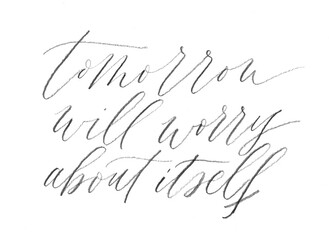 tomorrow
will worry
about itself